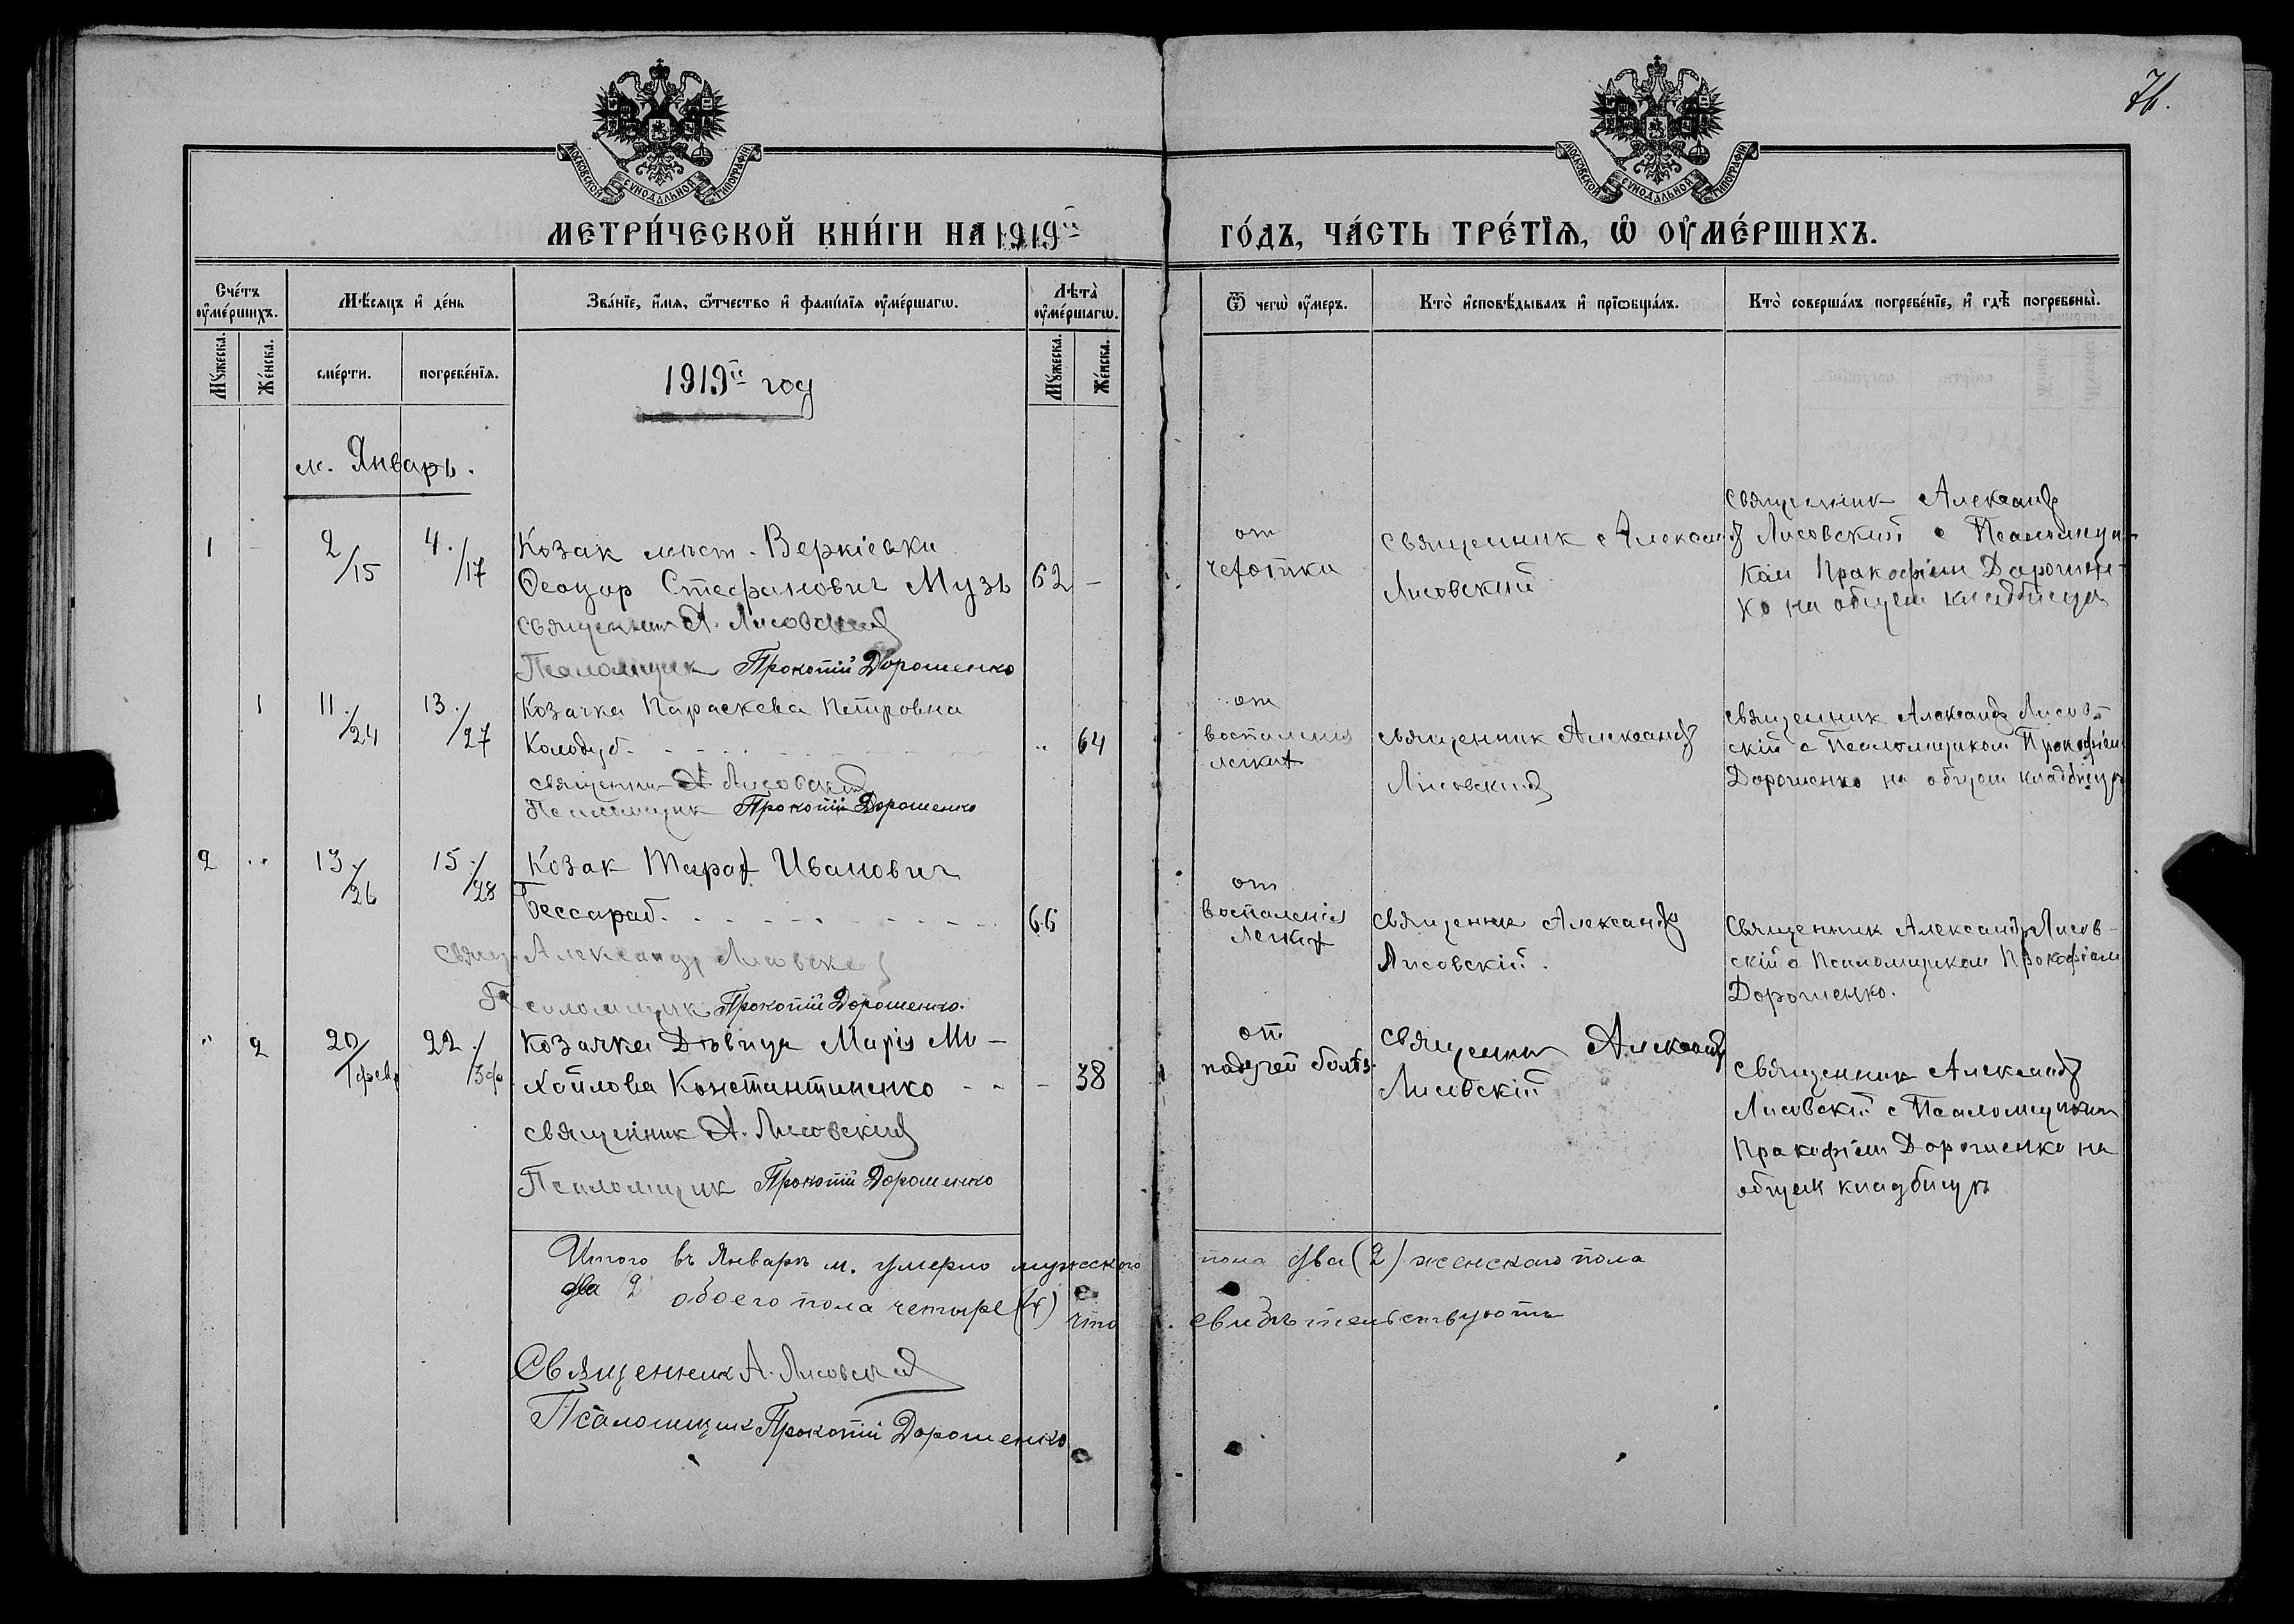 76.
МОСКОВСКОЙ СУНОДАЛЬНОЙ ТИПОГРАФІИ
МОСКОВСКОЙ СУНОДАЛЬНОЙ ТИПОГРАФІИ
МЕТРИ́ЧЕСКОЙ КНИ́ГИ НА 1919й ГО́ДЪ, ЧА́СТЬ ТРЕ́ТЇѦ, Ѡ҆ ОУ҆МЕ́РШИХЪ.
Сче́тъ оу҆ме́ршихъ.
Мѣ́сяцъ и҆ де́нь
Зва́нїе, и҆́мя, ѻ҆́тчество и҆ фами́лїя оу҆ме́ршагѡ.
Лѣта̀ оу҆ме́ршагѡ.
Ѿ чегѡ̀ оу҆́меръ.
Кто̀ и҆сповѣ́дывалъ и҆ прїѡбща́лъ.
Кто̀ соверша́лъ погребе́нїе, и҆ гдѣ̀ погребены̀.
Мꙋ́жеска.
Же́нска.
сме́рти.
погребе́нїя.
Мꙋ́жеска.
Же́нска.
1919й год
м. Январь.
1 - 2/15 4./17
Козак мест. Веркіевки
Ѳеодор Стефанович Музь 62 -
священник А. Лисовский
Псаломщик Прокопій Дорошенко
от
чехотки
священник Александр
Лисовский
священник Александр
Лисовский с Псаломщи-
ком Прокофіем Дорошен-
ко на общем кладбище
1 11./24 13./27
Козачка Параскева Петровна
Колодуб 64
священник А. Лисовский
Псаломщик Прокопій Дорошенко
от
воспаления
легких
священник Александр
Лисовский
священник Александр Лисов-
скій с Псаломщиком Прокофіем
Дорошенко на общем кладбище
2 13./26 15./28
Козак Тарах Иванович
Бессараб 66
Свящ. Александр Лисовский
Псаломщик Прокопій Дорошенко.
от
воспаленія
легких
священник Александр
Лисовскій.
Священник Александр Лисов-
скій с Псаломщиком Прокофіем
Дорошенко.
" 2 20/1 февр 22./3 ф
Козачка Дѣвица Марія Ми-
хайлова Константиненко - 38
священник А. Лисовский
Псаломщик Прокопій Дорошенко
от
падучей болѣз.
священник Александр
Лисовскій
Священник Александр
Лисовскій с Псаломщиком
Прокофіем Дорошенко на
общем кладбищѣ
Итого въ Январѣ м. умерло мужеского пола два (2) женскаго пола
два 2 обоего пола четыре (4) что свидѣтельствуютъ
Священник А. Лисовский
Псаломщик Прокопій Дорошенко